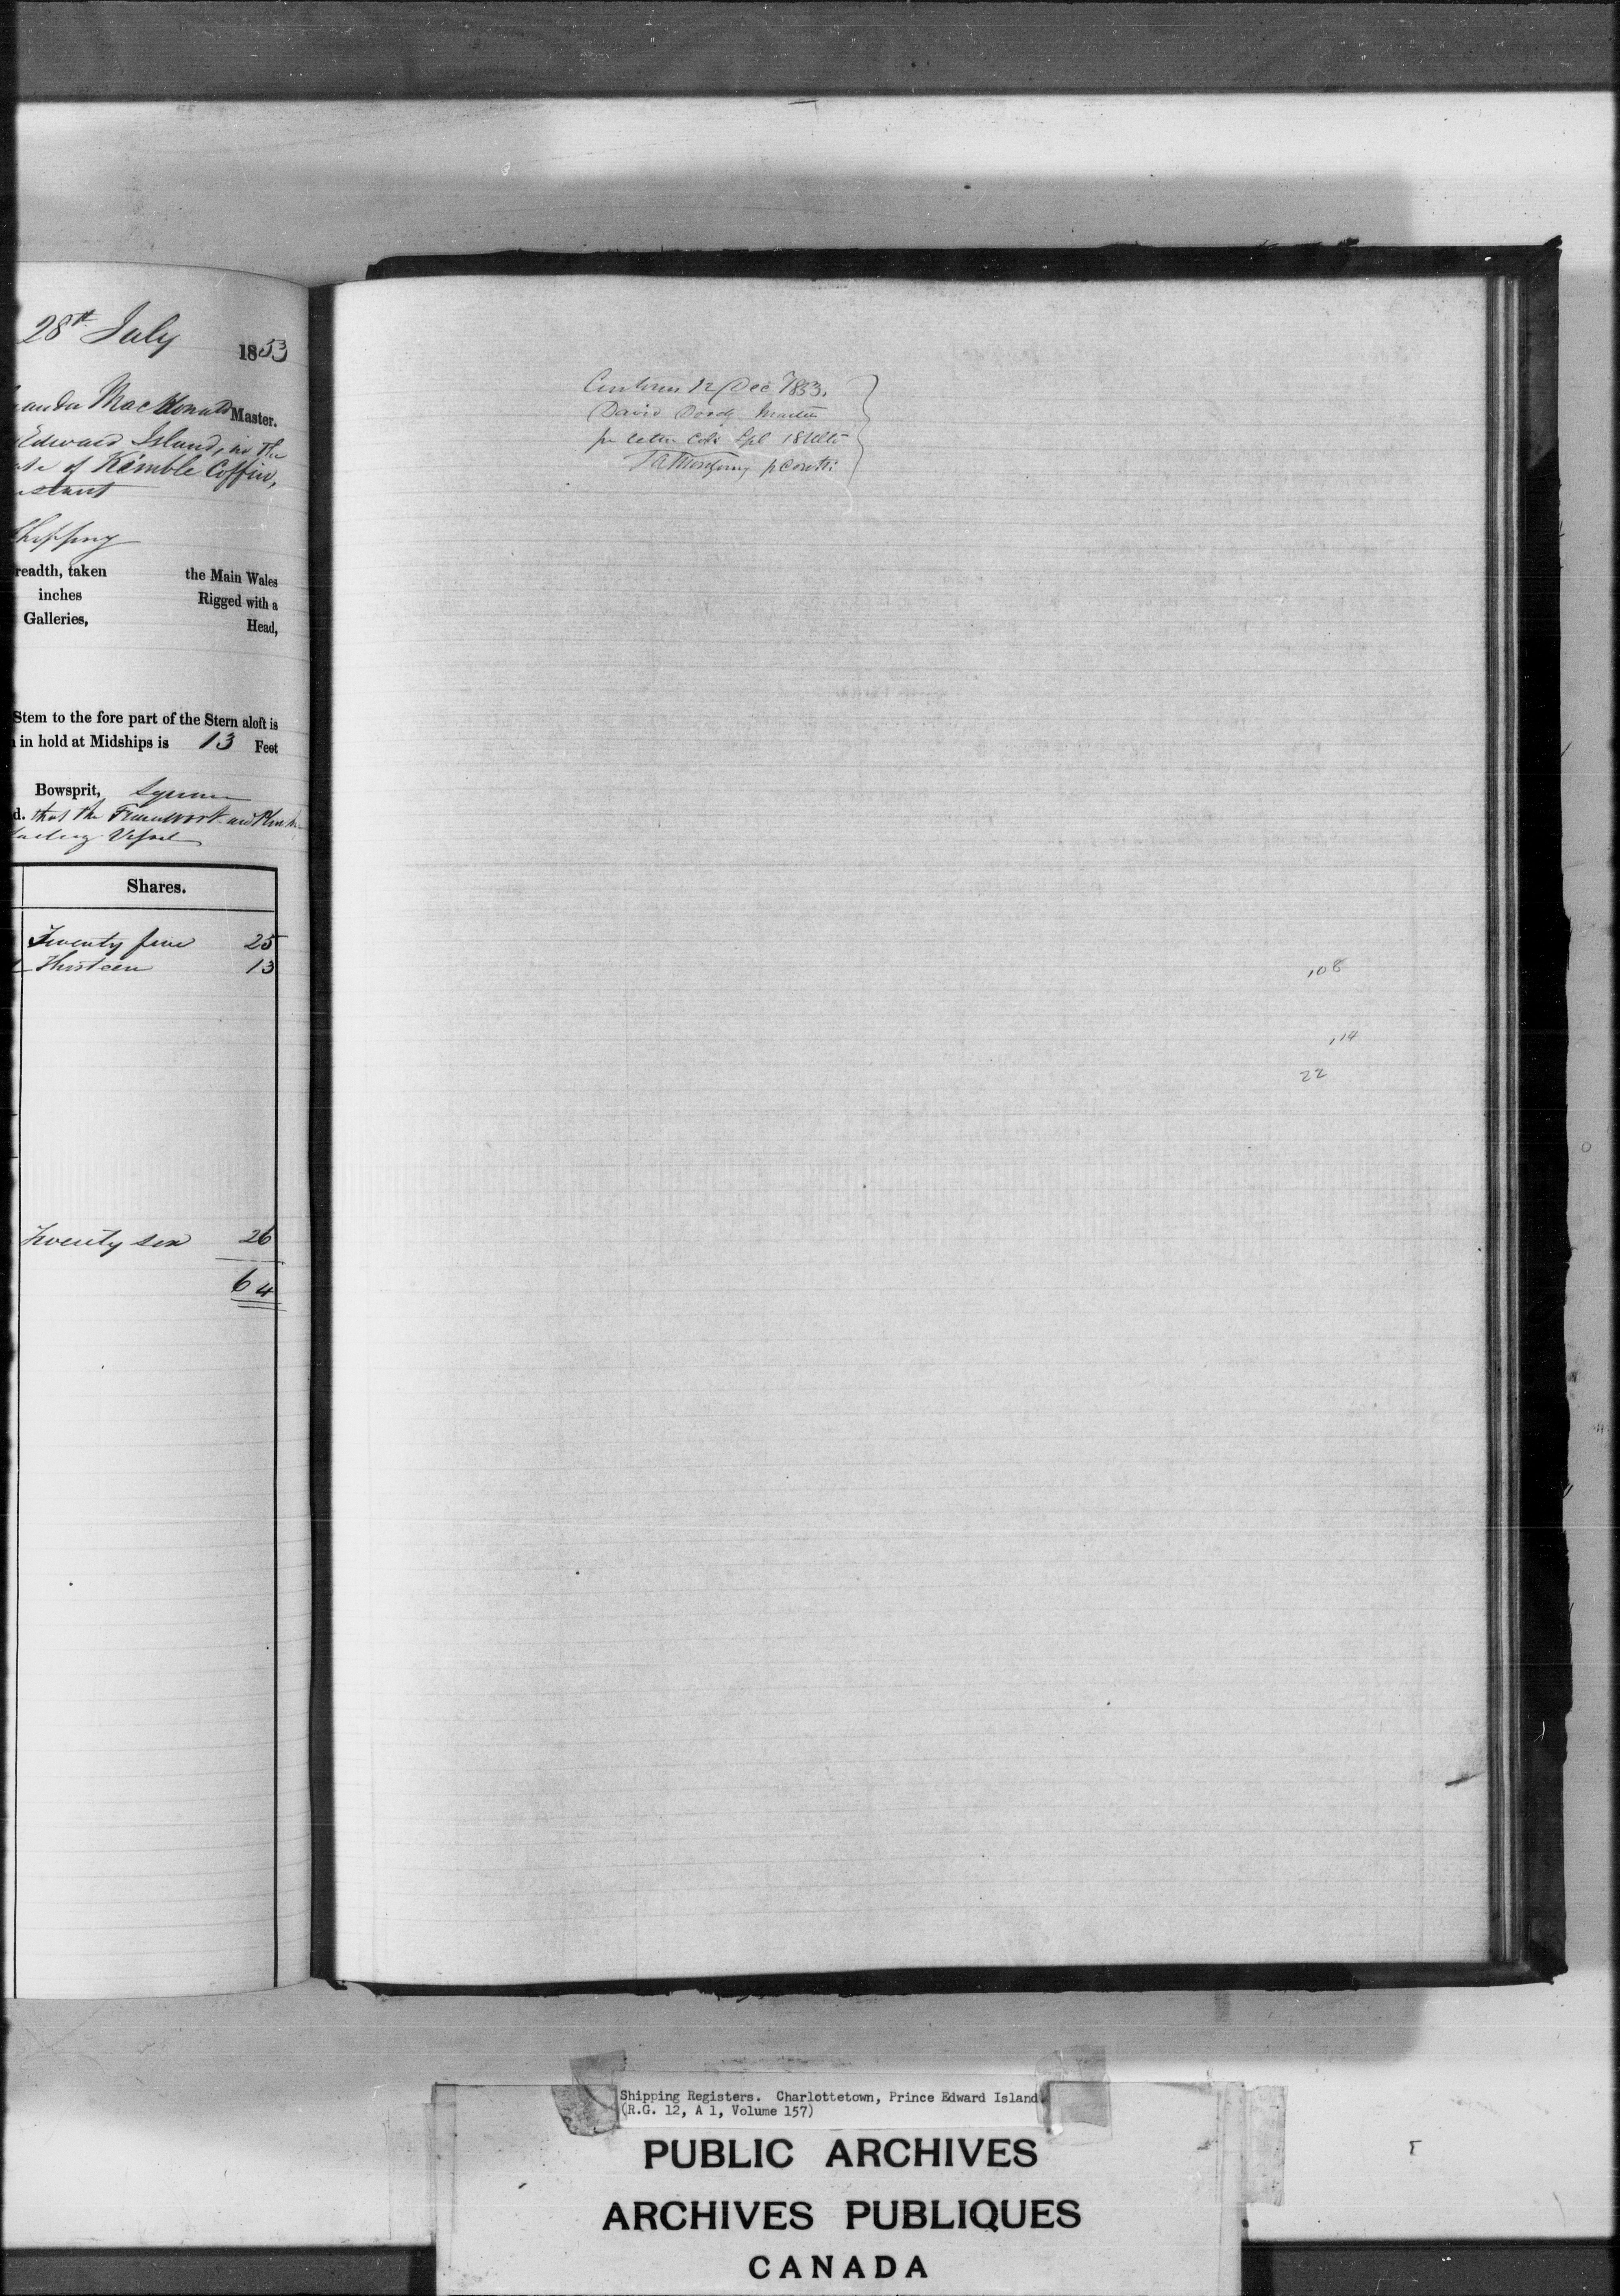 28th July 1853
MacDonald Master.
Edward Island, in the
of Kimble Coffin,
Shipping
readth, taken the Main Wales
inches Rigged with a
Galleries, Head,
Stem to the fore part of the Stern aloft is
in hold at Midships is 13 Feet
Bowsprit,
d. that the Framework and
Vessel
Shares.
Twenty five 25
Thirteen 13
Twenty six 26
64
12 Dec 1853.
David Master
pr letter Lpl 18 Ulto
108
114
22
Shipping Registers. Charlottetown, Prince Edward Island.
(R.G. 12, A 1, Volume 157)
PUBLIC ARCHIVES
ARCHIVES PUBLIQUES
CANADA